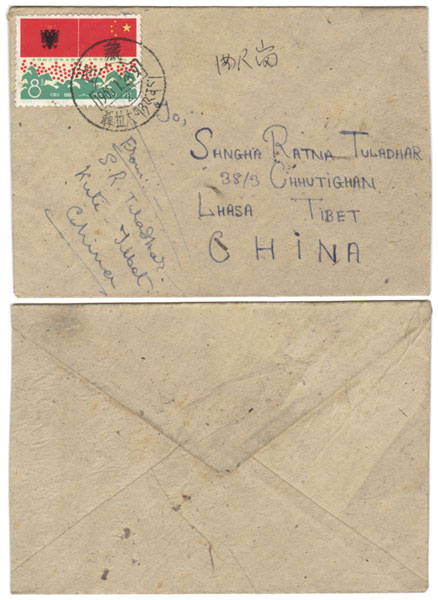 8
藏
聂拉木
To,
SHNGHA RATNA TULADHAR
38/3 CHHUTIGHAN
LHASA TIBET
CHINA
From:
S.R. Tuladhar.
Kuti - Tibet
China